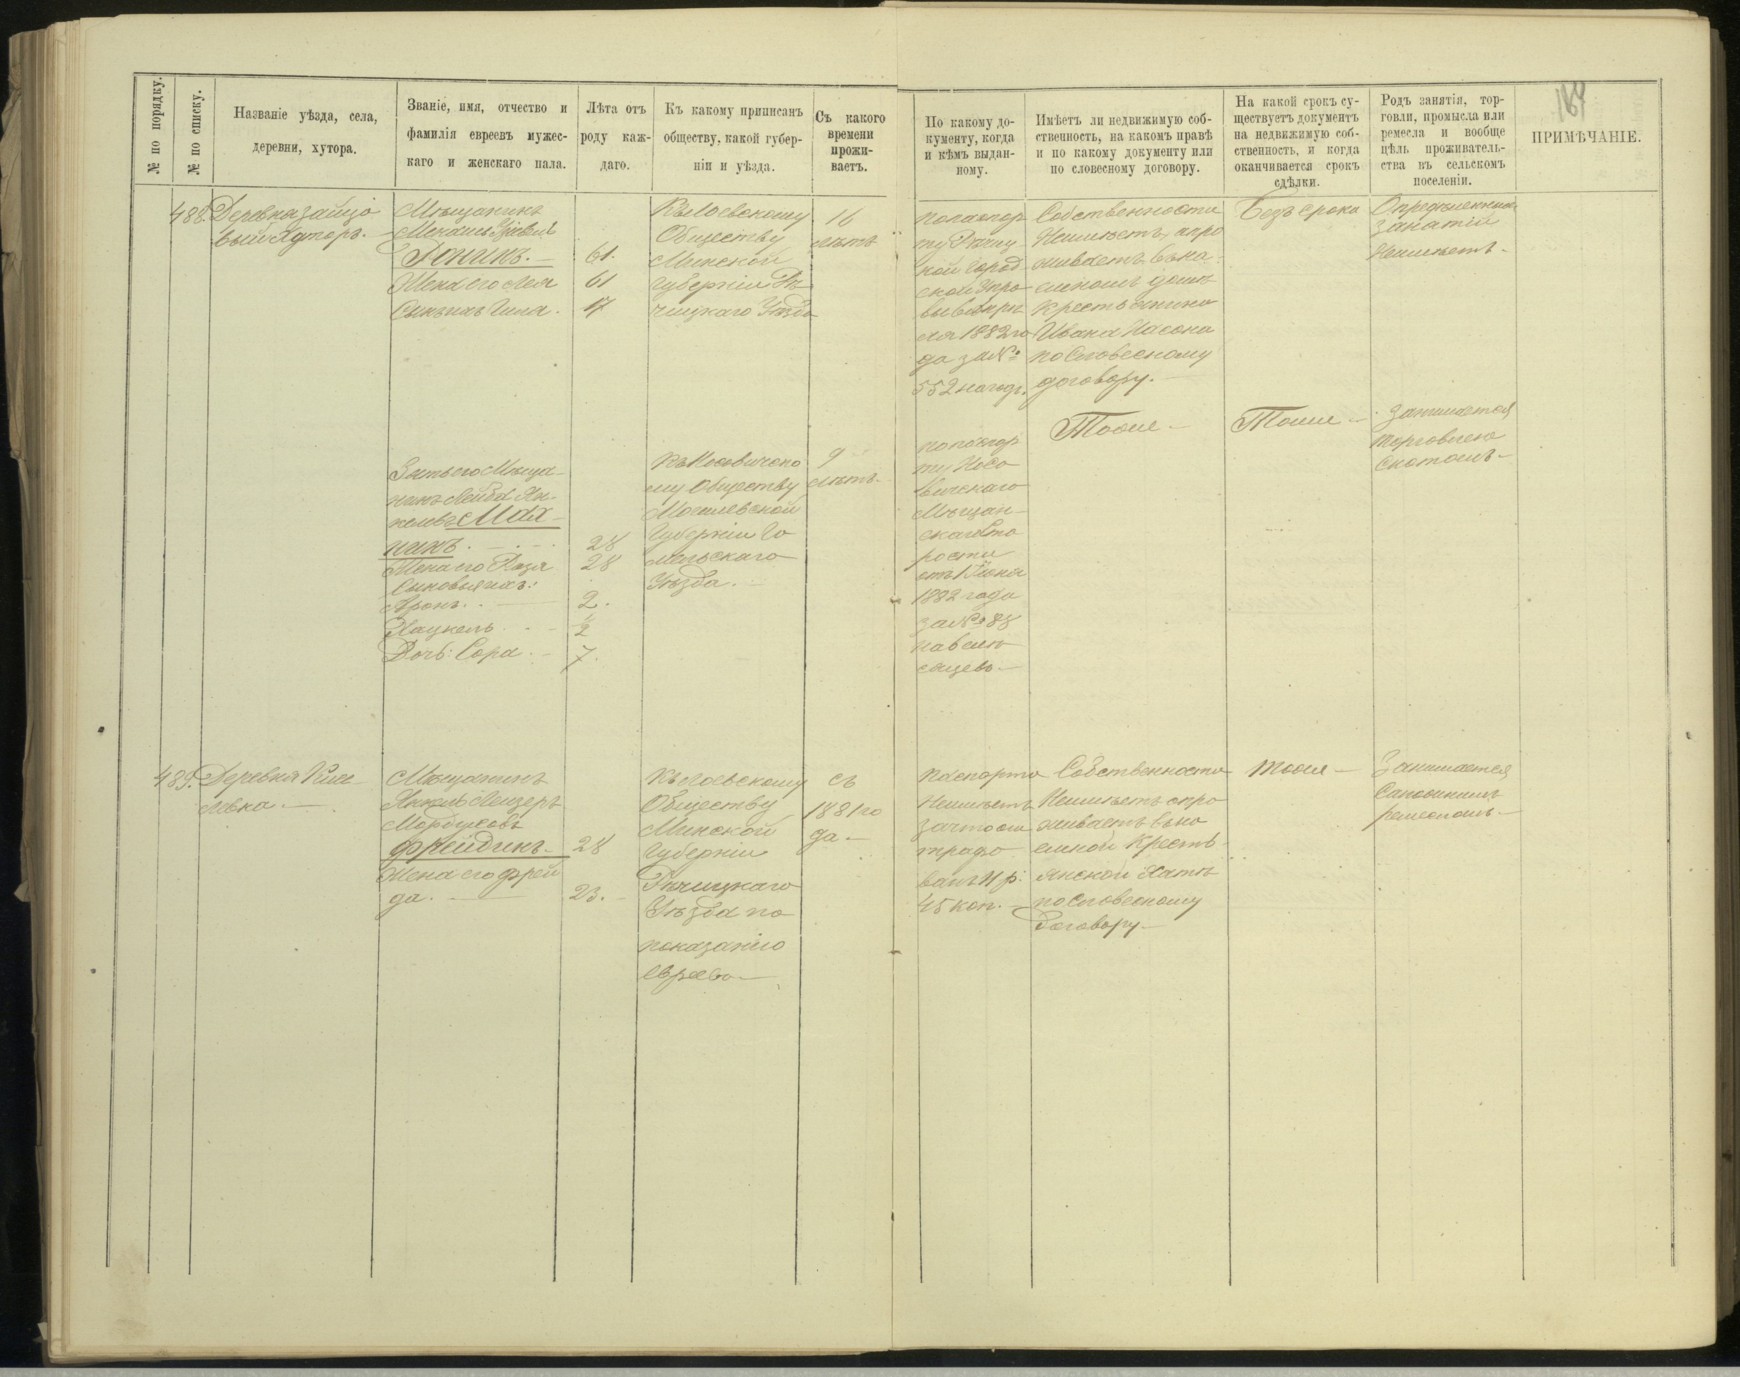 № по порядку.
№ по списку.
Названіе уѣзда, села,
деревни, хутора.
Званіе, имя, отчество и
фамилія евреевъ мужес-
каго и женскаго пала.
Лѣта отъ
роду каж-
даго.
Къ какому приписанъ
обществу, какой губер-
ніи и уѣзда.
Съ какого
времени
прожи-
ваетъ.
По какому до-
кументу, когда
и кѣмъ выдан-
ному.
Имѣетъ ли недвижимую соб-
ственность, на какомъ правѣ
и по какому документу или
по словесному договору.
На какой срокъ су-
ществуетъ документъ
на недвижимую соб-
ственность, и когда
оканчивается срокъ
сдѣлки.
Родъ занятія, тор-
говли, промысла или
ремесла и вообще
цѣль проживатель-
ства въ сельскомъ
поселеніи.
ПРИМѢЧАНІЕ.
488.
Деревня Зайцо
вый Хуторъ.
Мѣщанинъ
Гоникъ. —
Жена его Лея
Сынъ ихъ Гиля.
61.
61
17
Къ Лоевскому
Обществу
Минской
Губерніи Рѣ
чицкаго Уѣзда
16
лѣтъ
по паспор
ту Рѣчиц
кой Город
ской Упра
вы
ля 1882 го
да за №
552 на годъ.
Собственности
Неимѣетъ, а про
живаетъ въ на
емномъ домѣ
Крестьянина
Ивана Насона
по Словесному
договору. —
Безъ срока
Опредѣленныхъ
Занятій
Неимѣетъ. —
Зять его Мѣща-
нинъ Лейба Ян-
келевъ Мал-
кинъ. —
Жена его Хася
Сыновья ихъ:
Аронъ.
Хацкель
Дочь: Сора. —
28
28
2.
2
7.
Къ Носовичско
му Обществу
Могилевской
Губерніи Го
мельскаго
Уѣзда. —
9
лѣтъ.
по паспор
ту Носо
вичскаго
Мѣщан-
скаго Ста
росты
1882 года
за № 88
Тоже —
Тоже —
Занимается
торговлею
Скотомъ. —
489.
Деревня
левка. —
Мѣщанинъ
Янкель Лейзеръ
Мордуховъ
Фрейдинъ. —
Жена его Фрей
да. —
28
23. —
Къ Лоевскому
Обществу
Минской
Губерніи
Рѣчицкаго
Уѣзда по
показанію
Еврея —
съ
1881 го
да —
Паспорта
Неимѣетъ
за что ош
трафо
ванъ 11 р:
45 коп. —
Собственности
Неимѣетъ а про
живаетъ въ на
емной Кресть
янской Хатѣ
по Словесному
Договору —
Тоже —
Занимается
Сапожнымъ
ремесломъ. —